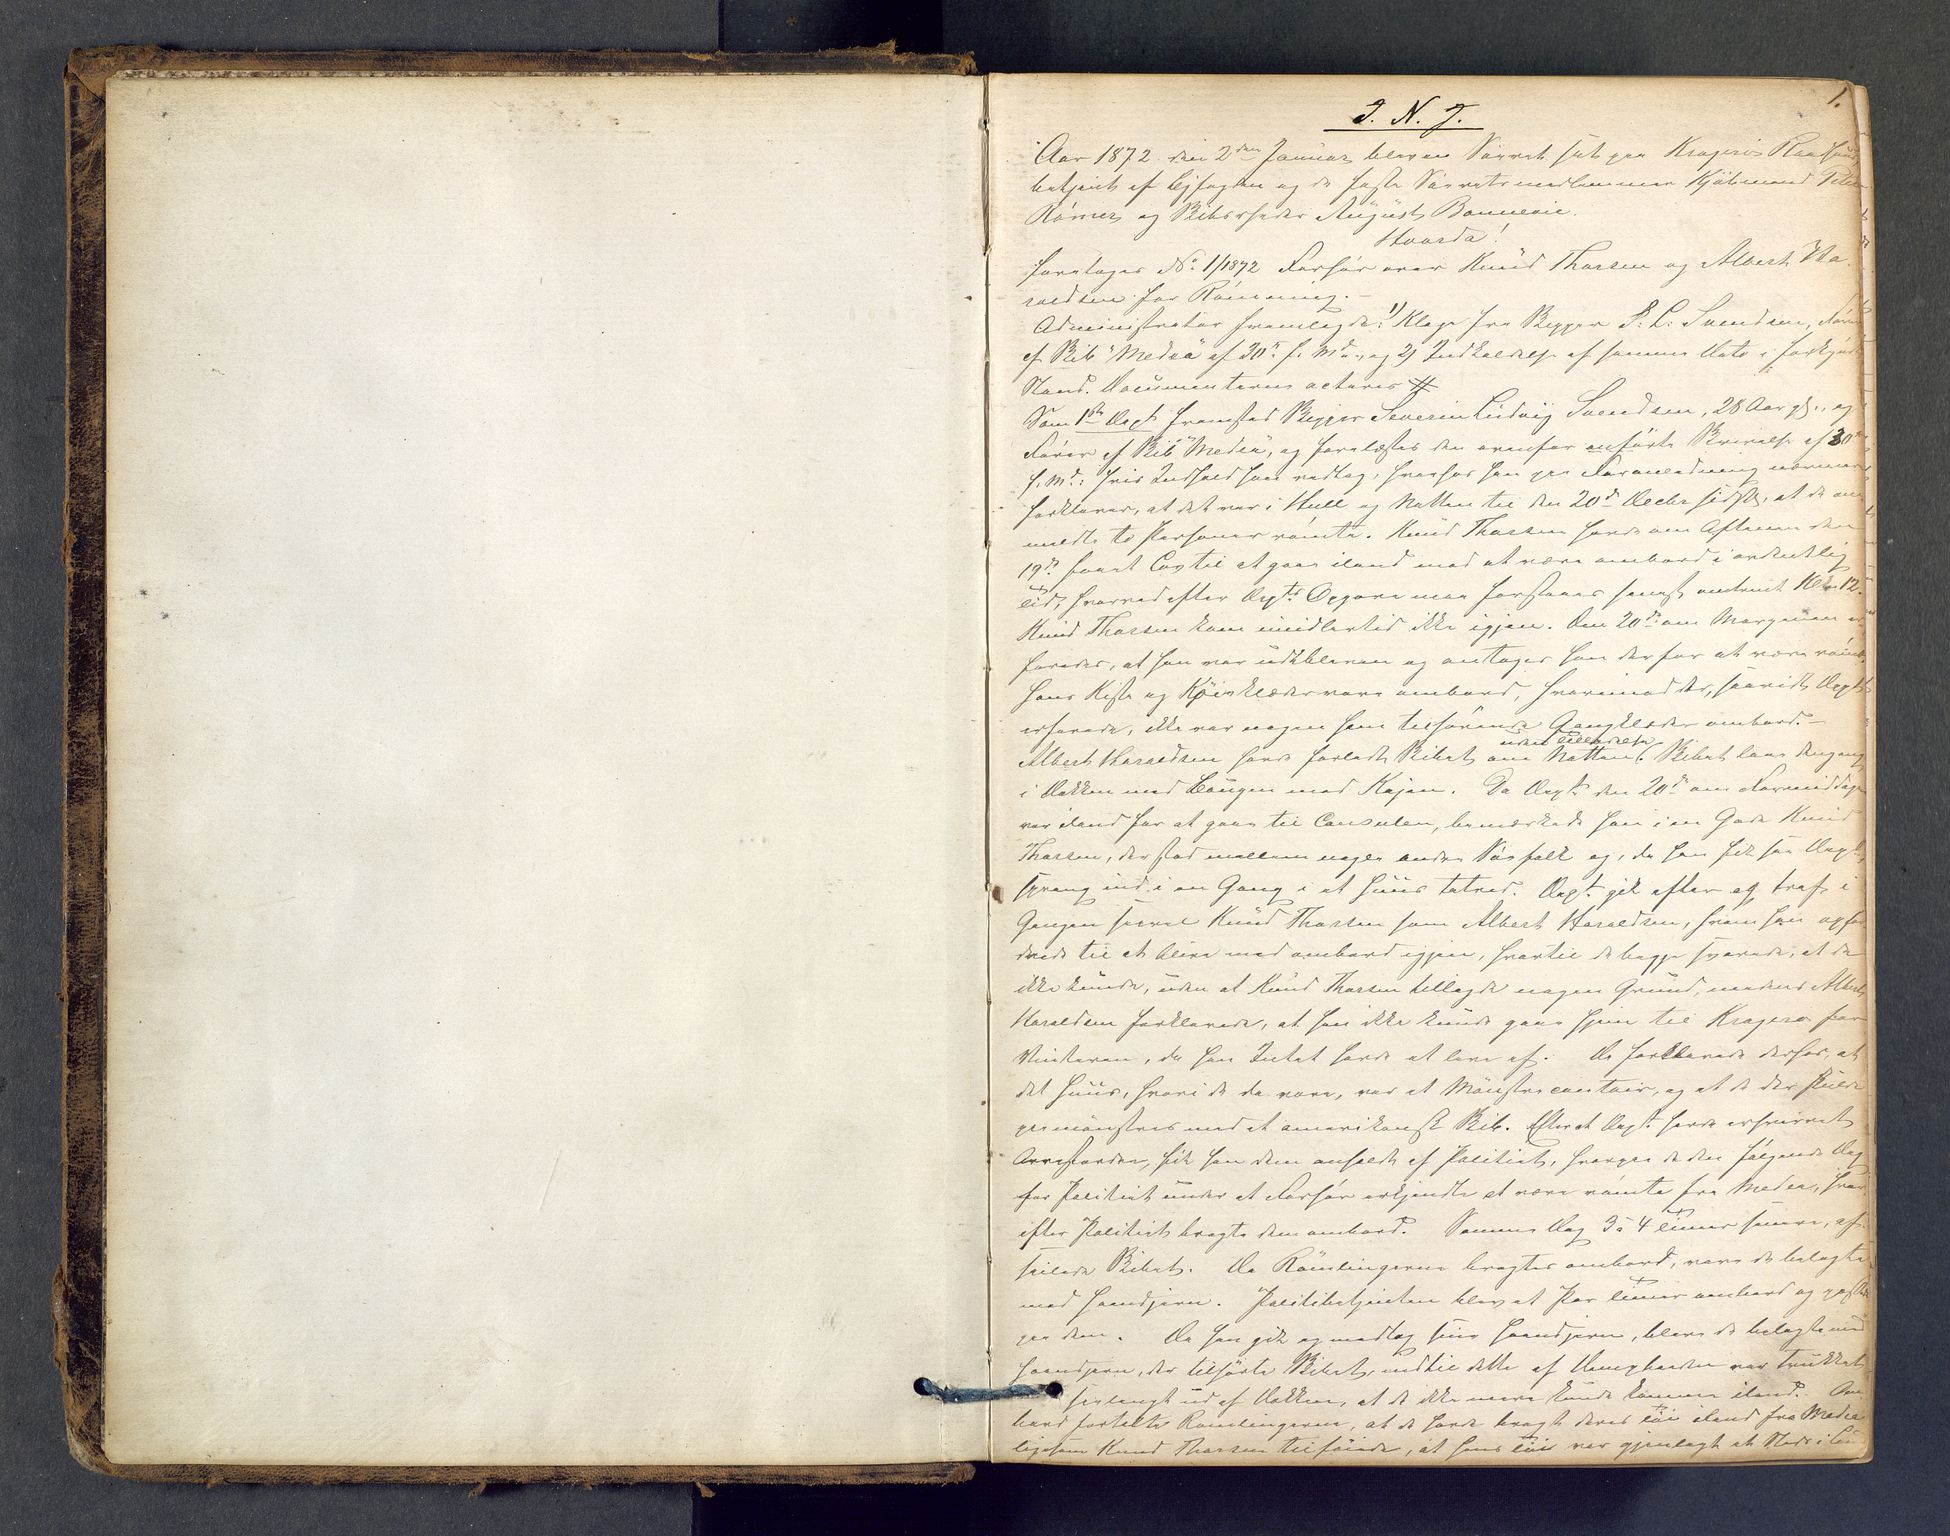 1.
J. N. J.
Aar 1872 den 2den Januar blev en Søeret sat paa Kragerø Raadhuus
betjent af Byfogden og de faste Søeretsmedlemmer Kjøbmand Peter
Rømer og Skibsrheder August Bonnevie.
Hvorda!
foretoges No. 1/1872 Forhør over Knud Thorsen og Albert Ha-
raldsen for Rømning.-
Administrator fremlagde: 1) Klage fra Skipper S. L. Svendsen, Fører
af Skib "Medea" af 30te f. Md., og 2) Indkaldelse af samme Dato i forkyndt
Stand. Documenterne acteres #
Som 1ste Dept fremstod Skipper Severin Ludvig Svendsen, 28 Aar gl., og
Fører af Skib "Medea", og forelæstes den ovenfor anførte Skrivelse af 30te
f. Md.: hvis Indhold han vedtog, hvorhos han paa Foranledning nærmere
forklarer, at det var i Hull og Natten til den 20de Decbr sidstl., at de om-
meldte to Personer rømte. Knud Thorsen havde om Aftenen den
19de faaet Lov til at gaae iland mod at være ombord i ordentlig
Tid, hvorved efter Depts Opgave maa forstaaes senest omtrent Kl. 12.
Knud Thorsen kom imidlertid ikke igjen. Den 20de om Morgenen er-
faredes, at han var udebleven og antages han derfor at være rømt.
Hans Kiste og Køieklæder vare ombord, hvorimod der, saavidt Dept
erfarede, ikke var nogen ham tilhørende Gangklæder ombord.-
Albert Haraldsen havde forladt Skibet om Natten uden Tilladelse. Skibet laae dengang
i Dokken med Bougen mod Kajen. Da Dept. den 20de om Formiddagen
var iland for at gaae til Consulen, bemærkede han i en Gade Knud
Thorsen, der stod mellem nogle andre Søefolk og, da han fik see Dept,
sprang ind i en Gang i et Huus tætved. Dept. gik efter og traf i
Gangen saavel Knud Thorsen som Albert Haraldsen, hvem han opfor-
drede til at blive med ombord igjen, hvortil de begge svarede, at de
ikke kunde, uden at Knud Thorsen tillagde nogen Grund, medens Albert
Haraldsen forklarede, at han ikke kunde gaae hjem til Kragerø for
Vinteren, da han Intet havde at leve af. De forklarede derhos, at
det Huus, hvori de da vare, var et Mønstrecontoir, og at de der skulde
paamønstres med et amerikansk Skib. Efterat Dept. havde erhvervet
Arrestordre, fik han dem anholdt af Politiet, hvorpaa de den følgende Dag
for Politiet under et Forhør erkjendte at være rømte fra Medea, hvor-
efter Politiet bragte dem ombord. Samme Dag 3 a 4 Timer senere, af-
seilede Skibet. Da Rømlingerne bragtes ombord, vare de belagte
med Haandjern. Politibetjenten blev et Par Timer ombord og passede
paa dem. Da han gik og modtog sine Haandjern, bleve de belagte med
Haandjern, der tilhørte Skibet, indtil dette af Dampbaaden var trukket
saalangt ud af Dokken, at de ikke mere kunde komme iland. Om-
bord fortalte Rømlingerne, at de havde bragt deres Tøi iland fra Medea
ligesom Knud Thorsen tilføiede, at hans Tøi var gjenlagt et Sted i